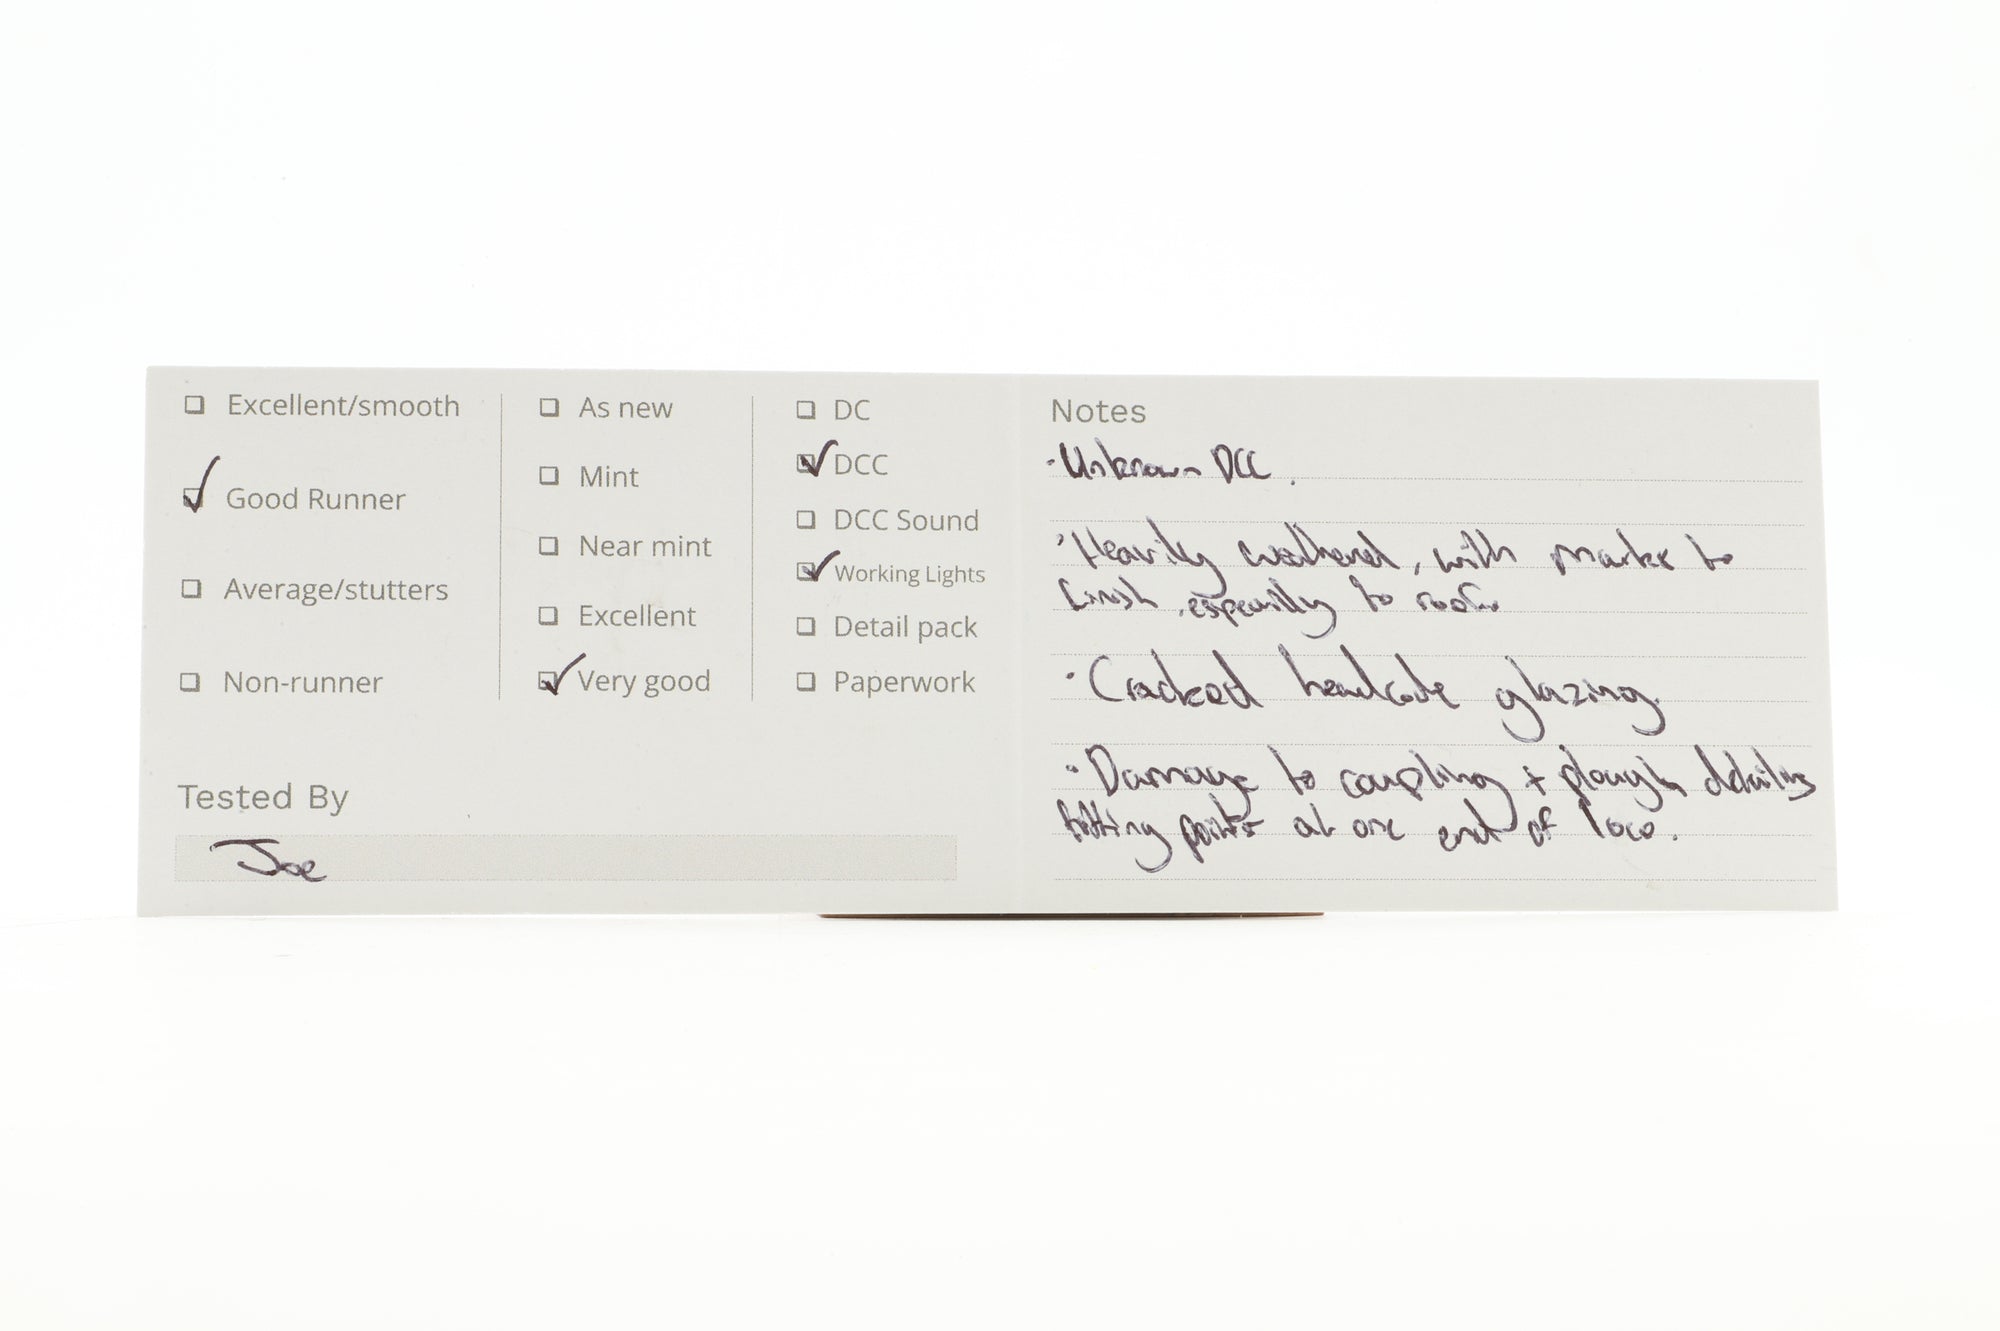 Excellent/smooth
Good Runner
Average/stutters
Non-runner
As new
Mint
Near mint
Excellent
Very good
DC
DCC
DCC Sound
Working Lights
Detail pack
Paperwork
Tested By
Joe
Notes
·Unknown DCC.
·Heavily weathered, with marks to
finish, especially to roof.
·Cracked headcode glazing.
·Damage to coupling + plough detailing
fitting points at one end of loco.